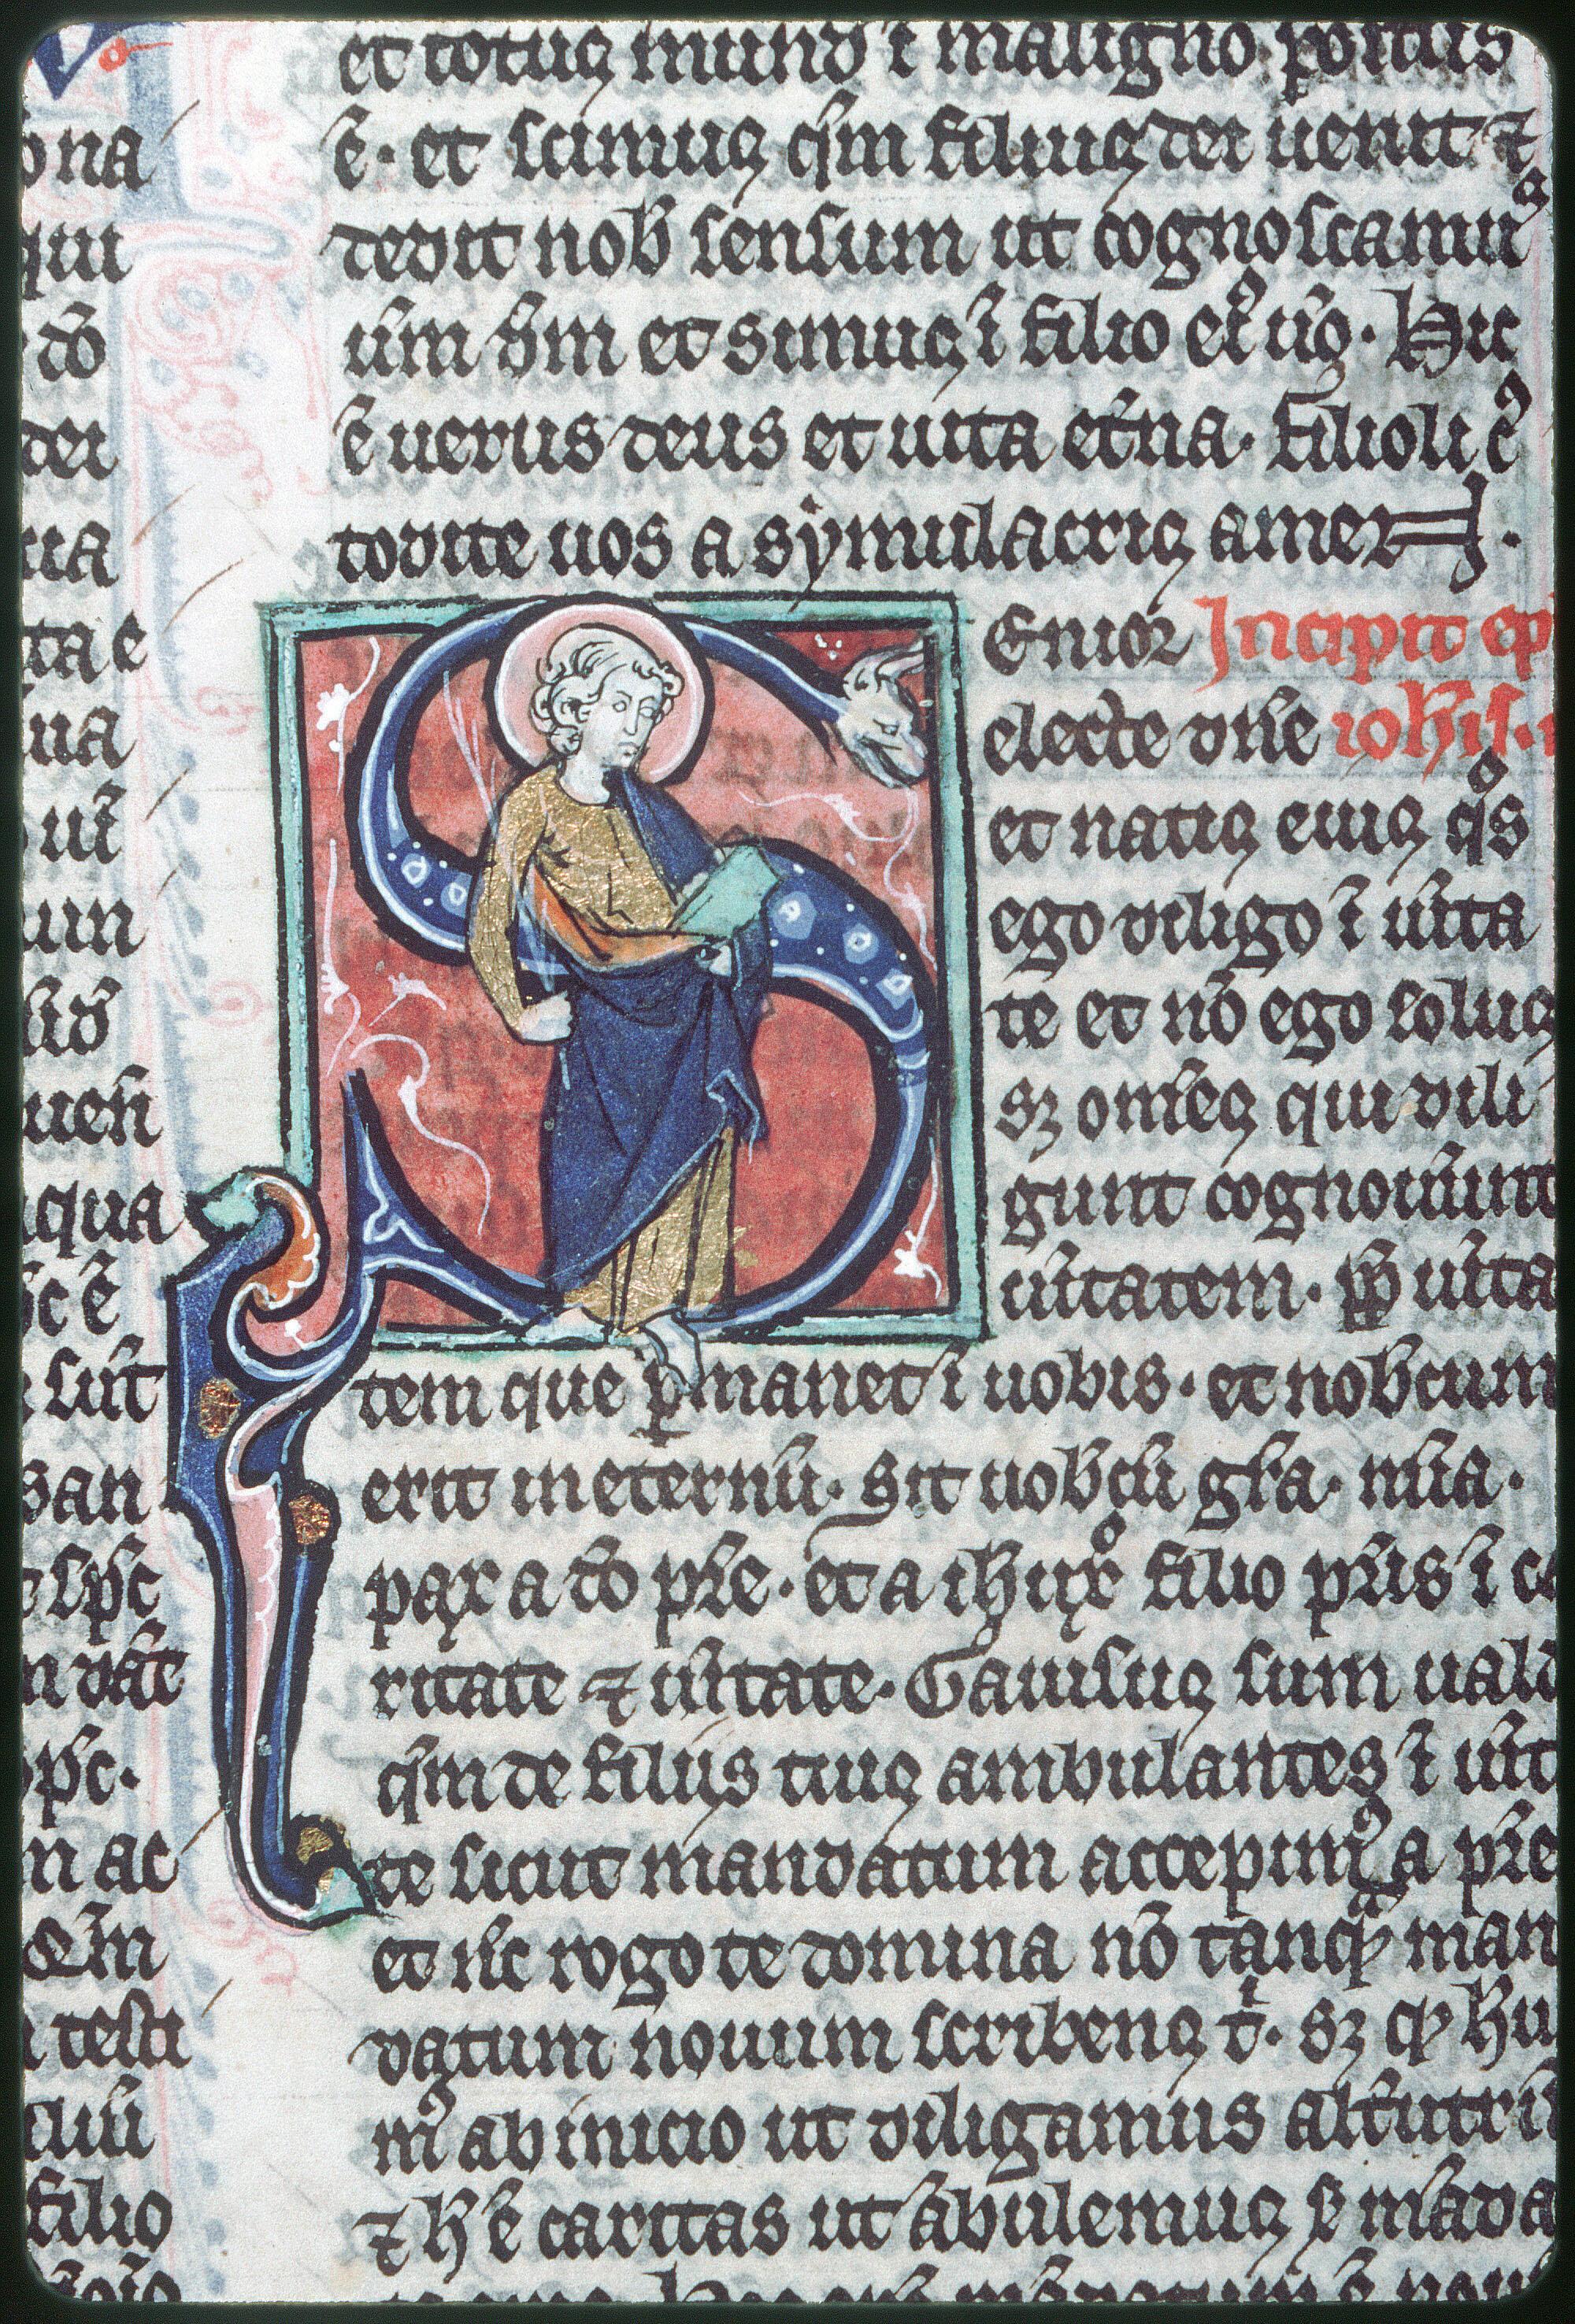 ona
qui
do
der
ua
ta e
ua
un
qua
sut
san
n ac
Qm
testi
filio
et totus mund' i maligno positus
ē. et scimus qm̄ filius dei uenit ⁊
dedit nob̄ sensum ut cognoscamus
um̄ dm̄ et simus ī filio ei' uo. Hic
ē uerus deus et uita et̄na. filioli c'
todite uos a symulacris amen.
Enior Incipit ep
electe dn̄e ioh̄is.
et natis eius q̊s
ego diligo ī uīta
te et nō ego solus
sꝫ om̄es qui dili
gunt cognou̅unt
uītatem. ꝓp̄ uīta
tem que ꝑmanet ī uobis. et nob̄cum
erit in eternū. Sit uob̄cū gr̄a. mīa.
pax a dō pr̄e. et a ihu xp̊ filio pr̄is ī ca
ritate ⁊ uītate. Gauisus sum uald
qm̄ de filiis tuis ambulantes ī uīt
te sicut mandatum accepim' a pr̄e
et n̄c rogo te domina nō tanqᵃ man
datum nouum scribens t'. sꝫ qᵈ hu
im' ab inicio ut diligamus alt̄utrū
⁊ h' ē caritas ut ābulemus s̄ māda